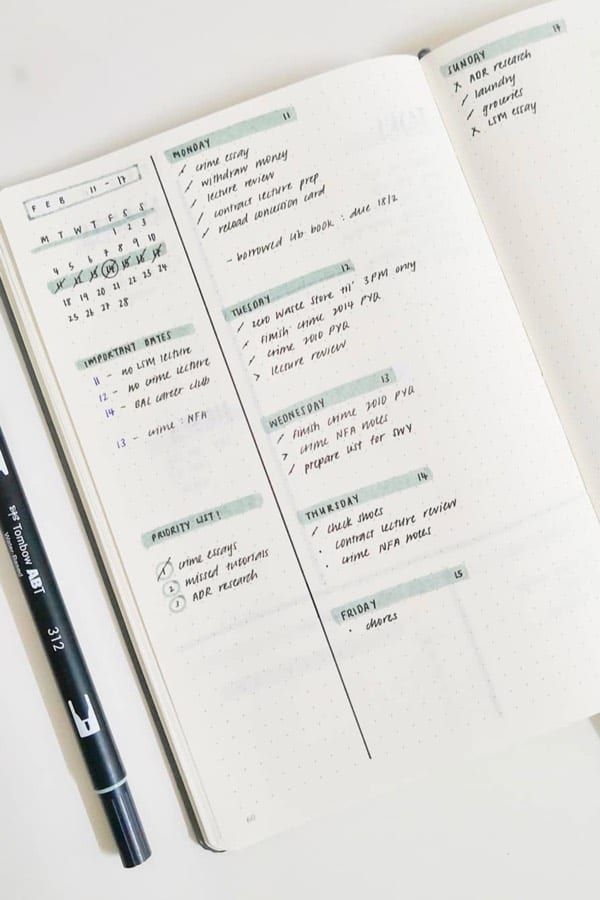 FEB 11 - 17
M T W T F S S
1 2 3
4 5 6 7 8 9 10
11 12 13 14 15 16 17
18 19 20 21 22 23 24
25 26 27 28
IMPORTANT DATES
11 - no LSM lecture
12 - no crime lecture
14 - BAL career club
13 - crime : NFA
PRIORITY LIST!
1 crime essays
2 missed tutorials
3 ADR research
MONDAY 11
/ crime essay
/ withdraw money
/ lecture review
/ contract lecture prep
/ reload concession card
- borrowed lib book : due 18/2
TUESDAY 12
/ zero waste store til' 3PM only
/ finish crime 2014 PYQ
/ crime 2010 PYQ
> lecture review
WEDNESDAY 13
/ finish crime 2010 PYQ
> crime NFA notes
/ prepare list for
THURSDAY 14
/ check shoes
· contract lecture review
· crime NFA notes
FRIDAY 15
· chores
60
SUNDAY 17
x ADR research
/ laundry
/ groceries
x LSM essay
Tombow ABT
Water Based
312